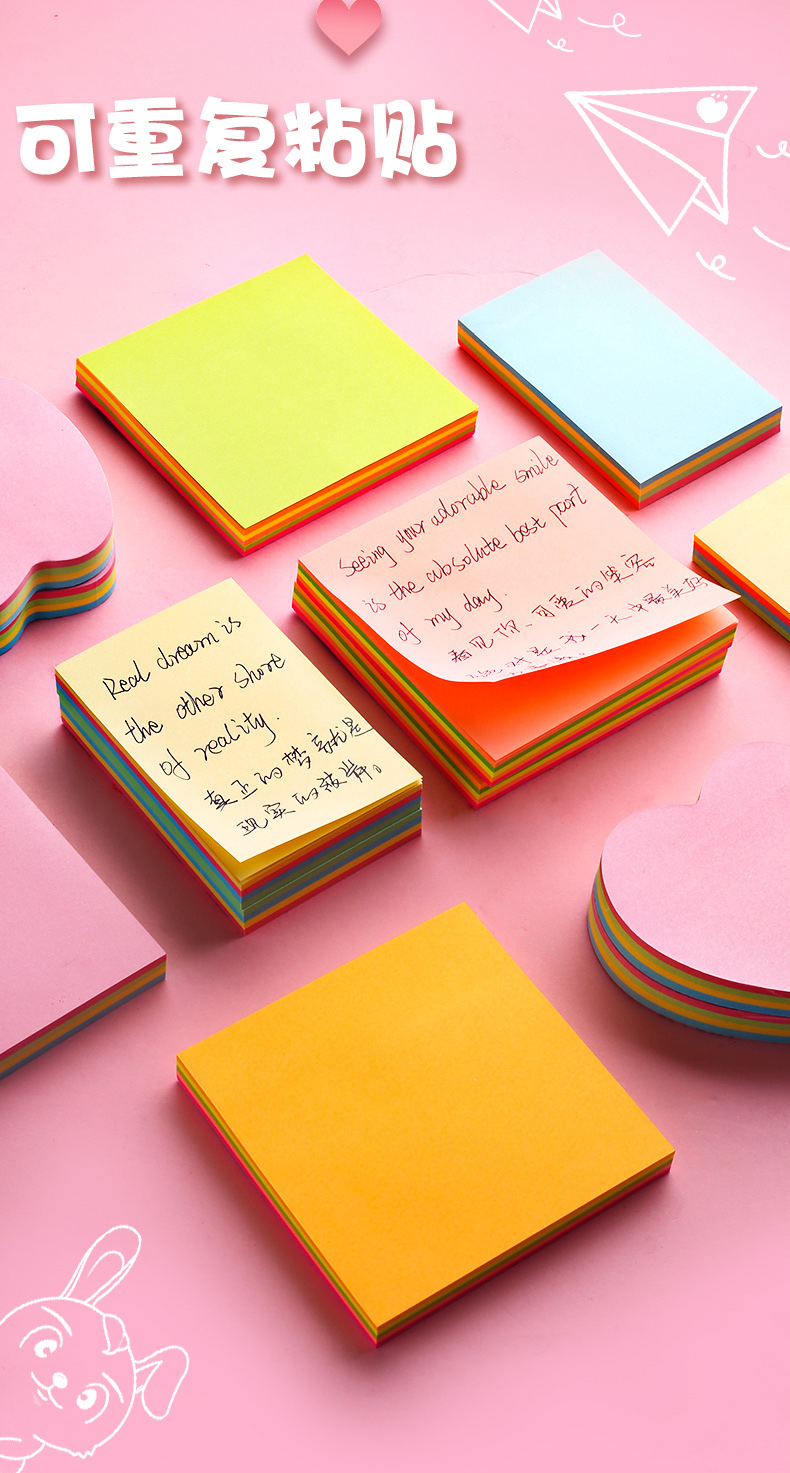 可重复粘贴
Seeing your adorable smile
is the absolute best part
of my day.
看见你、可爱的笑容
一天
Real dream is
the other shore
of reality.
真正的梦就是
现实的彼岸。